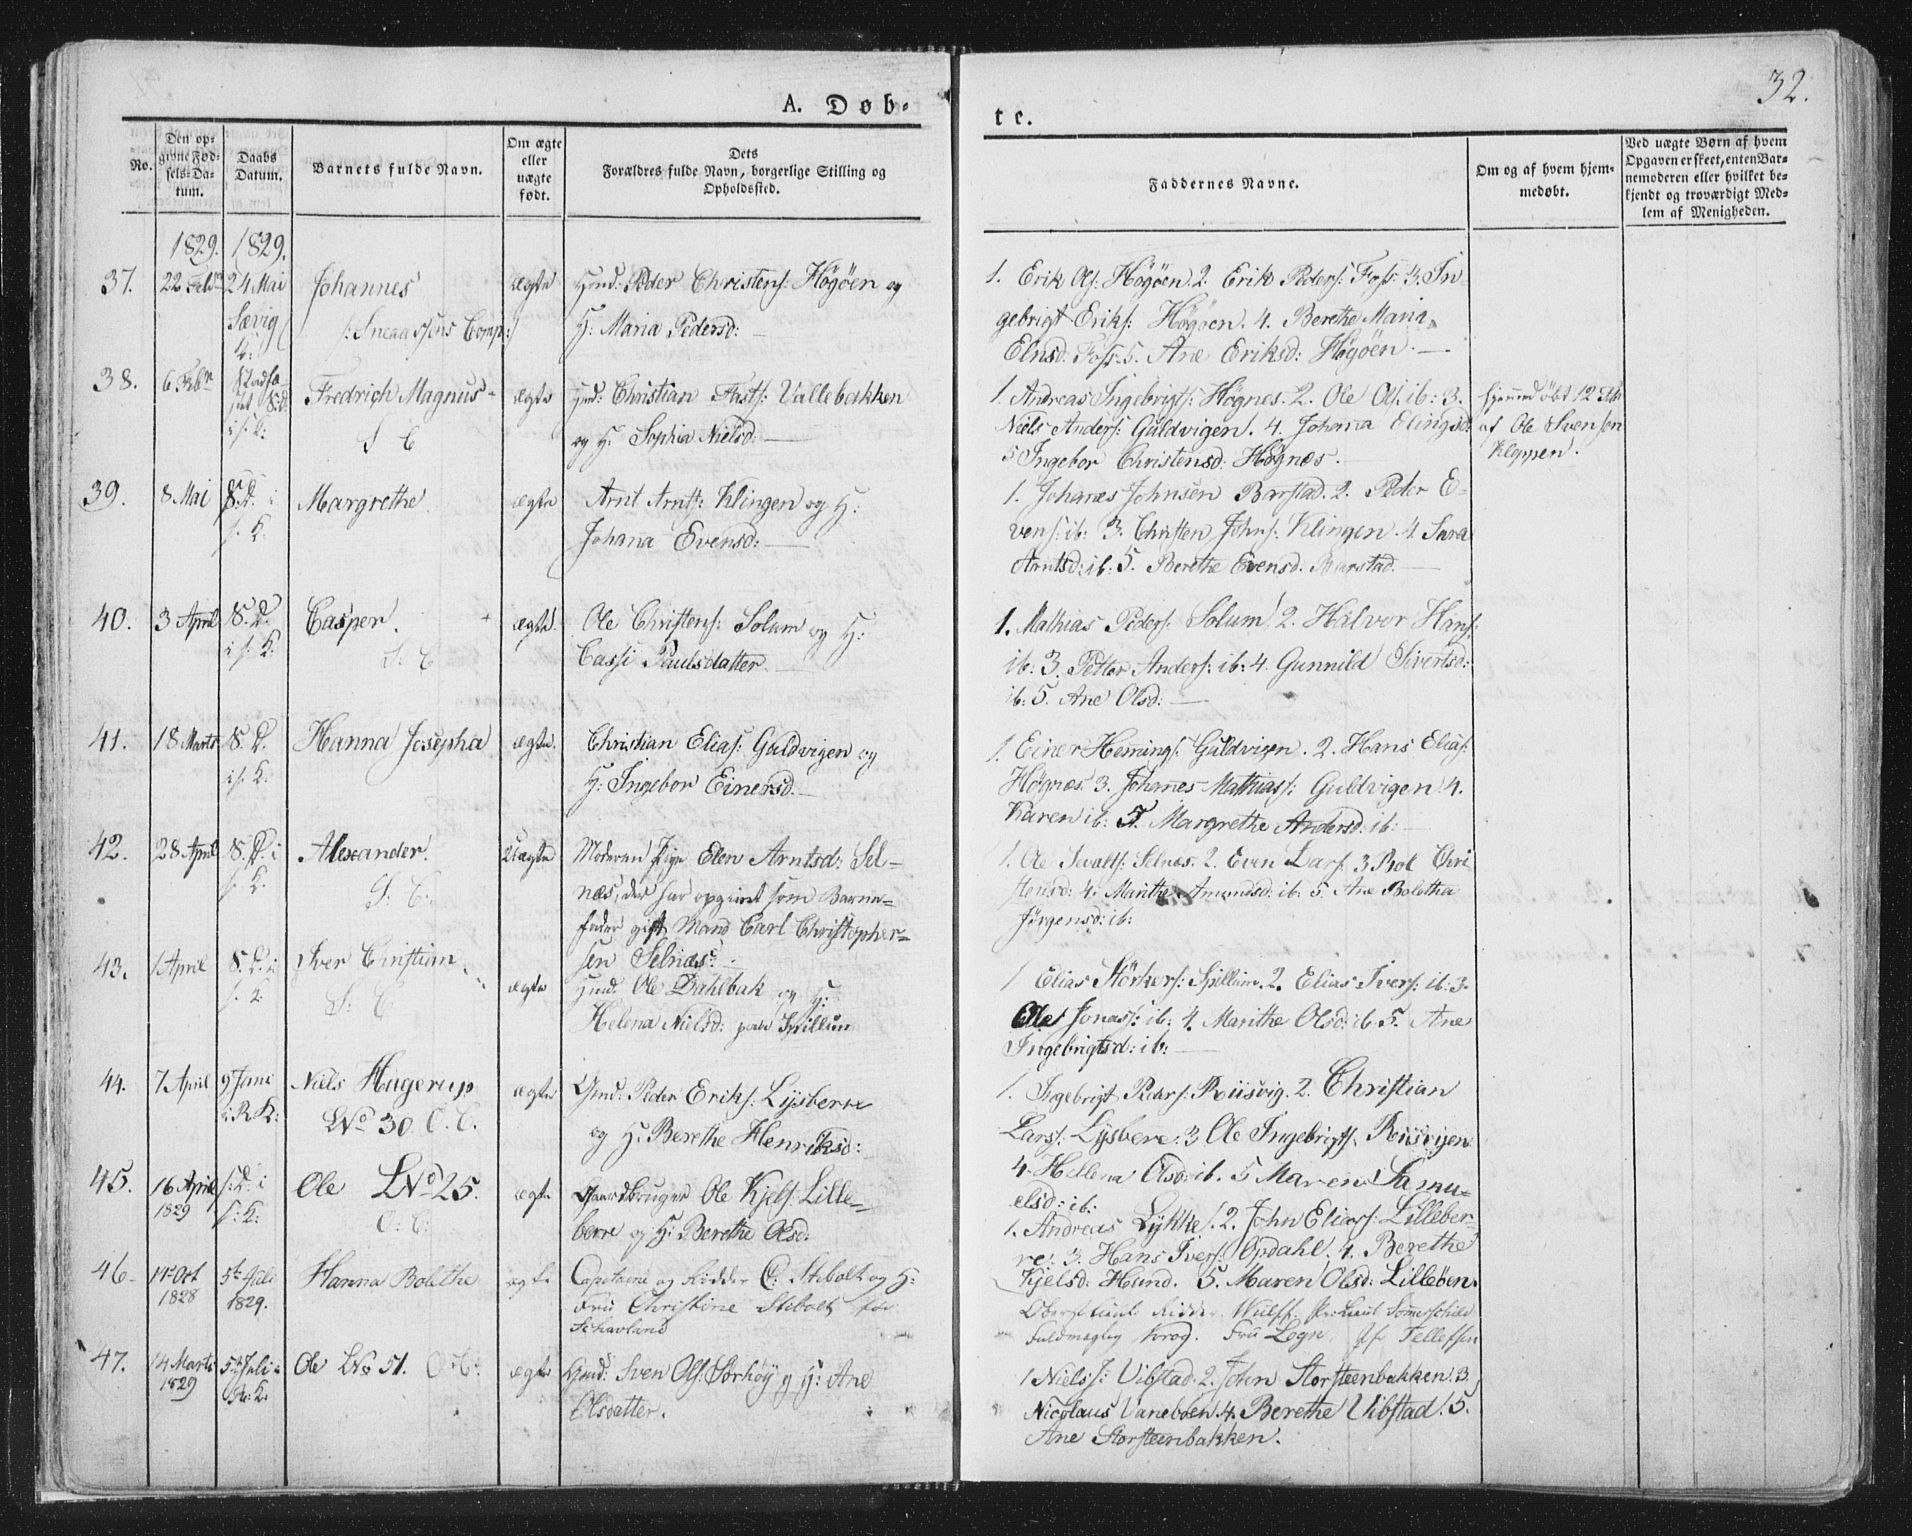 32.
A. Døb-
te.
No.
Den op-
givne Fød-
sels-Da-
tum.
Daabs
Datum.
Barnets fulde Navn.
Om ægte
eller
uægte
født.
Dets
Forældres fulde Navn, borgerlige Stilling og
Opholdssted.
Faddernes Navne.
Om og af hvem hjem-
medøbt.
Ved uægte Børn af hvem
Opgaven er skeet, enten Bar-
nemoderen eller hvilket be-
kjendt og troværdigt Med-
lem af Menigheden.
1829. 1829.
37. 22 Febr 24 Mai Johannes ægte Huusmd: Peder Christens: Högöen og
Sævig /: Sneaasens Comp:/ H: Maria Pedersd:
1. Erik Ols: Högöen. 2. Erik Peders: Foss. 3. In-
gebrigt Eriks: Högöen. 4. Berethe Maria
Elnsd: Foss. 5. Ane Eriksd: Högöen.
38. 6 Febr Stadfæ- Fredrich Magnus ægte Huusmd: Christian Fasts: Vallebakken
stet S:D:
i s: K: S C og H: Sophia Nielsd:
1. Andreas Ingebrigts: Högnes. 2. Ole Ols: ib: 3.
Niels Anders: Guldvigen. 4. Johana Elingsd:
5 Ingebor Christensd: Högnes.
hjemmedöbt 12 Feb
af Ole Svensen
Kleppen.
39. 8 Mai S: D. i Margrethe. ægte Arnt Arnts: Klingen og H:
s. K. Johana Evensd:
1. Johanes Johnsen Barstad. 2. Peder E-
vens: ib: 3. Christen Johns: Klingen. 4 Sara
Arntsd: ib: 5. Berethe Evensd: Barstad.
40. 3 April S. D. Casper. ægte Ole Christens: Solum og H:
i s. K: S: C Cassi Paulsdatter.
1. Mathias Peders. Solum. 2. Halvor Hans:
ib: 3. Petter Anders: ib: 4 Gunnild Sivertsd:
ib: 5. Ane Olsd:
41. 18 Marts S. D. Hanna Josepha ægte. Christian Elias: Guldvigen og
i s. K. H: Ingebor Einersd.
1. Einer Hemings: Guldvigen. 2. Hans Elias:
Högnes. 3. Johanes Mathias: Guldvigen. 4.
Karen ib: 5. Margrethe Andersd: ib:
42. 28 April S. D. i Alexander. Uægte Moderen Pige Elen Arntsd: Sel-
s. K. S: C: næs, der har opgivet som Barne-
fader gift Mand Carl Christopher-
sen Selnæs.
1. Ole Sivalts: Selnes. 2. Even Lars: 3 Bol Chri-
stensd: 4. Marithe Amundsd: ib: 5. Ane Boletha
Jörgensd: ib:
43. 1 April S. D. i Iver Christian ægte Huusmd: Ole Dahlbak og H:
s. K. S: C Helena Nielsd: paa Spillum
1 Elias Störkers: Spillum. 2. Elias Ivers: ib: 3.
Ole Jonas: ib: 4. Marithe Olsd: ib 5. Ane
Ingebrigtsd: ib:
44. 7 April 9 Juni Niels Hagerup ægte Gmd: Peder Eriks: Lysberre
i R K: L No 30. O. C. og H: Berethe Henriksd:
1. Ingebrigt Peders: Riisvig. 2. Christian
Lars: Lysberre. 3 Ole Ingebrigts: Riisvigen
4. Hellena Olsd: ib. 5 Maren Samu-
elsd: ib:
45. 16 April s: D: i Ole L No 25. ægte Gaardbruger Ole Kjels: Lille-
1829 s: K: O: C: berre og H: Berethe Olsd:
1. Andreas Lykke. 2. John Elias: Lilleber-
re. 3. Hans Ivers: Opdahl. 4. Berethe
Kjelsd: Hund. 5. Maren Olsd: Lilleöen.
46. 14 Oct 5te Juli Hanna Bolethe ægte Capitaine og Ridder C: Stibolt og H:
1828 1829. Frue Christine Stibolt före
Schavland
Oberstlieut: Ridder Wulff Pr: Lieut Sommerschild
Fuldmægtig Krog. Frü Logn Jf Tellefsen
47. 14 Marts 5te Juli i Ole L No 51. O: C: ægte Gmd: Sven Ols: Sörhöy og H: Ane
1829 R: K: Olsdatter.
1 Niels J: Vibstad. 2. John Storsteenbakken. 3.
Nicolaus Vaneböen. 4. Berethe Vibstad. 5.
Ane Storsteenbakken.